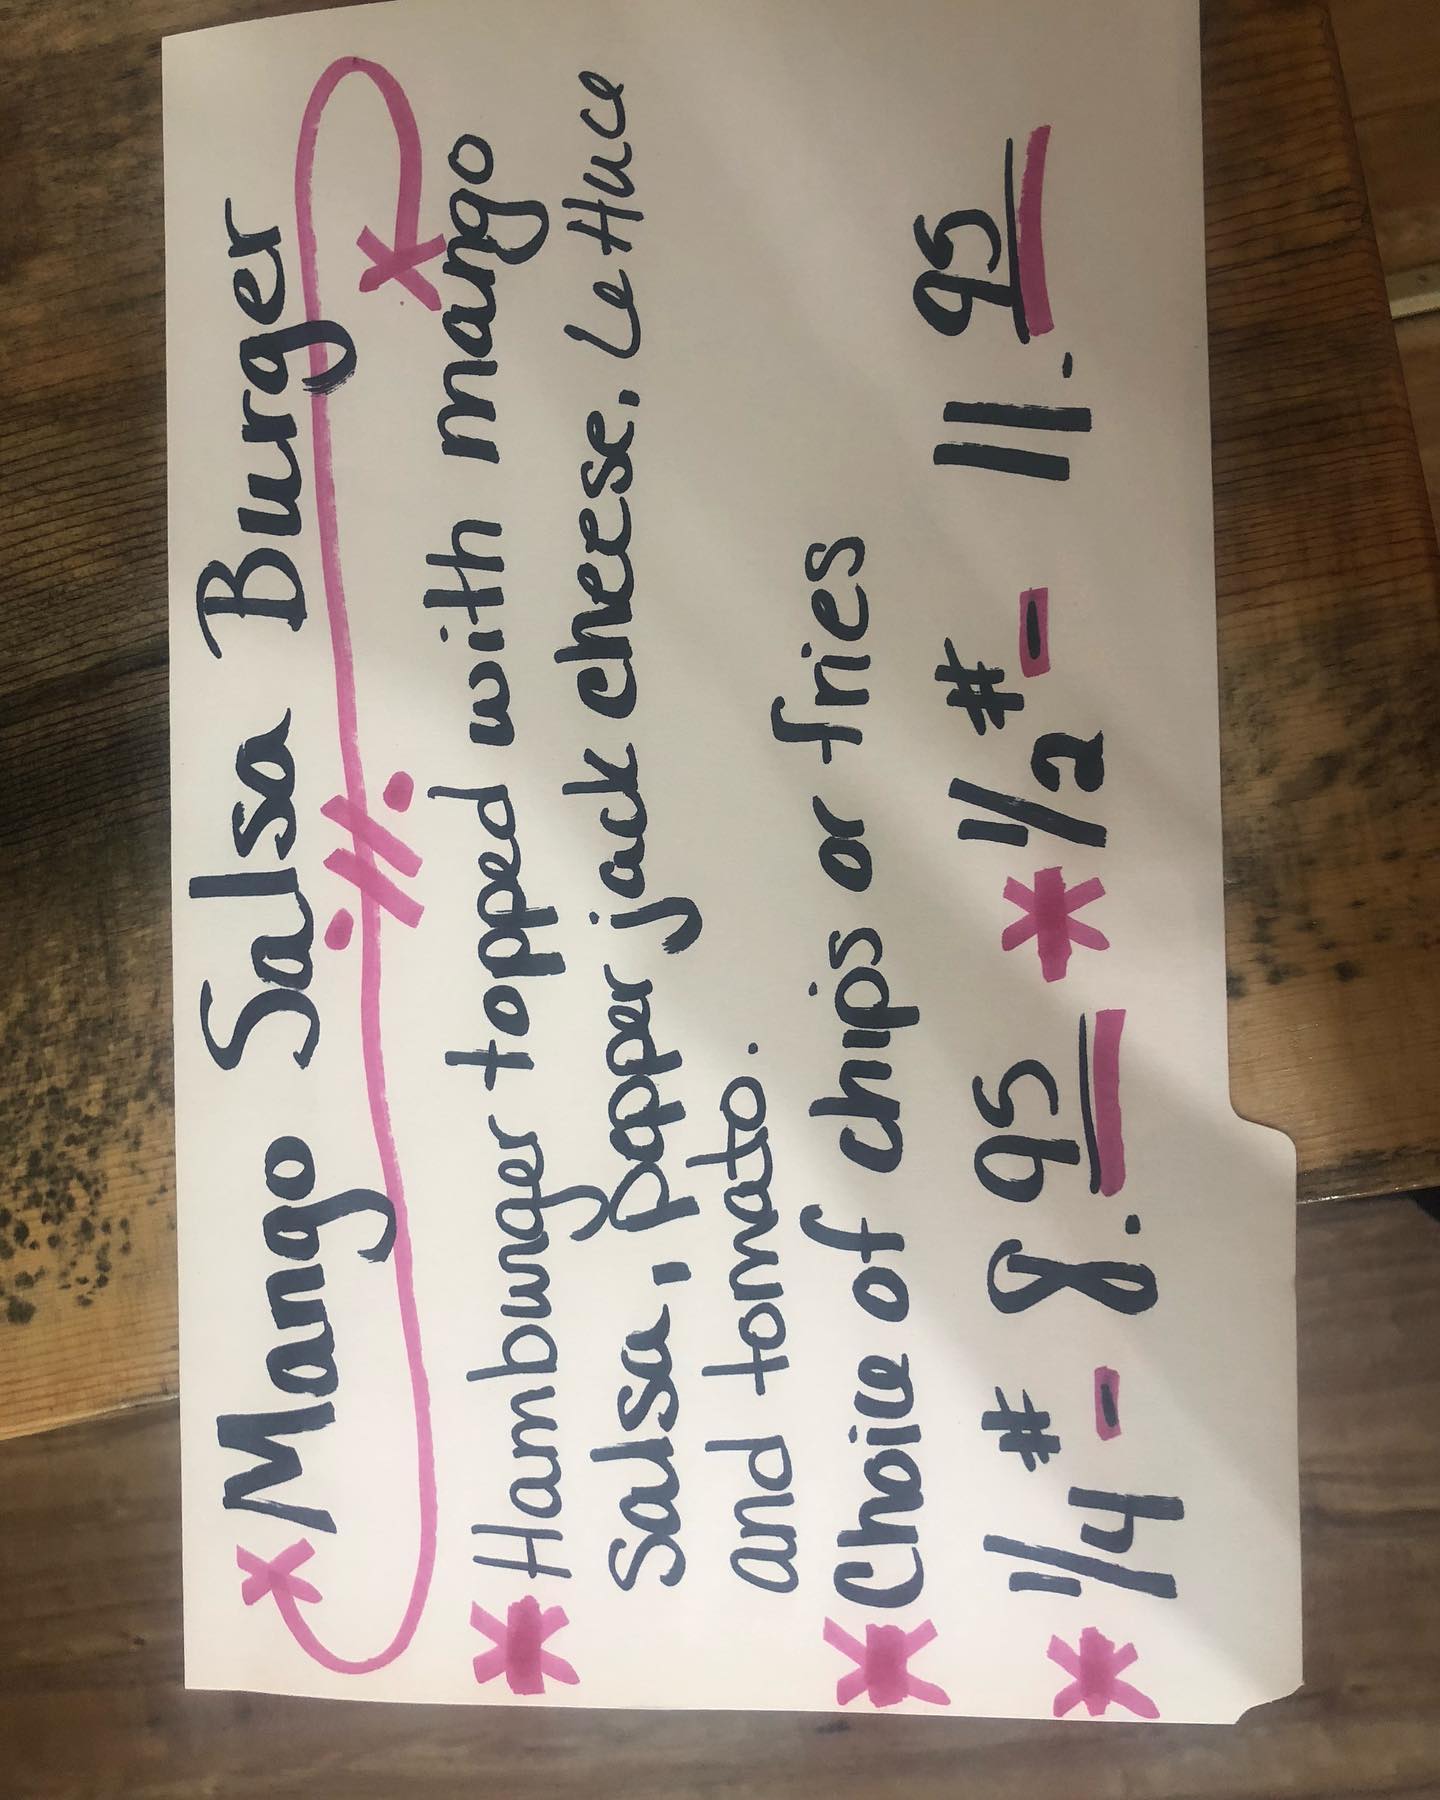 Mango Salsa Burger
Hamburger topped with mango
Salsa, pepper jack cheese. Lettuce
and tomato.
Choice of chips or fries
1/4# - 8.95 * 1/2# - 11.95